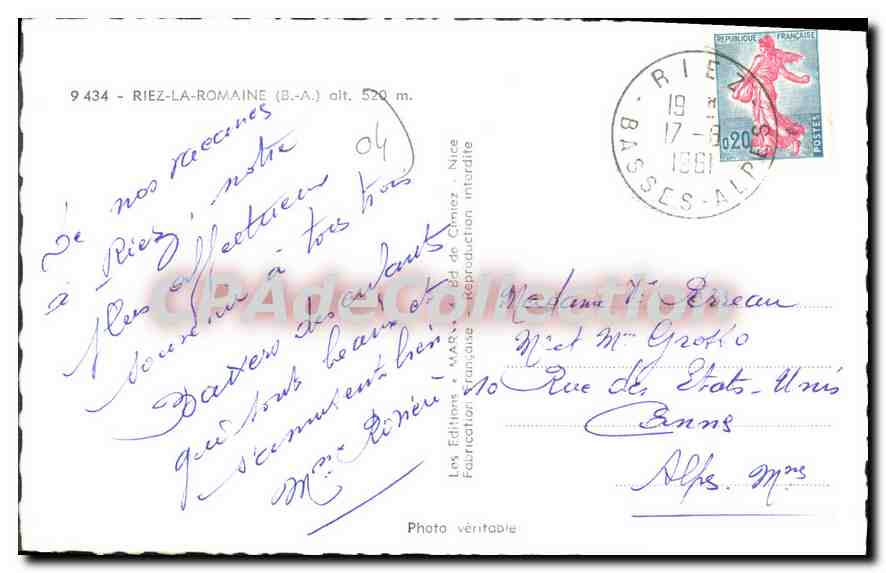 9 434 - RIEZ-LA-ROMAINE (B.-A.) alt. 520 m.
04
De nos vacances
à Riez, notre
plus affectueux
souvenir à tous trois
Baisers des enfants
qui sont beaux et
s'amusent bien.
Mme Rivière
Photo véritable
Les Editions "MAR", Bd de Cimiez - Nice
Fabrication Française - Reproduction interdite
RIEZ
19
17 -8
1961
BASSES-ALPES
REPUBLIQUE FRANÇAISE
0,20
POSTES
Madame Vᵉ Perreau
Mr et Mme Grosso
10 Rue des Etats-Unis
Cannes
Alpes. Mmes
CPAdeCollection